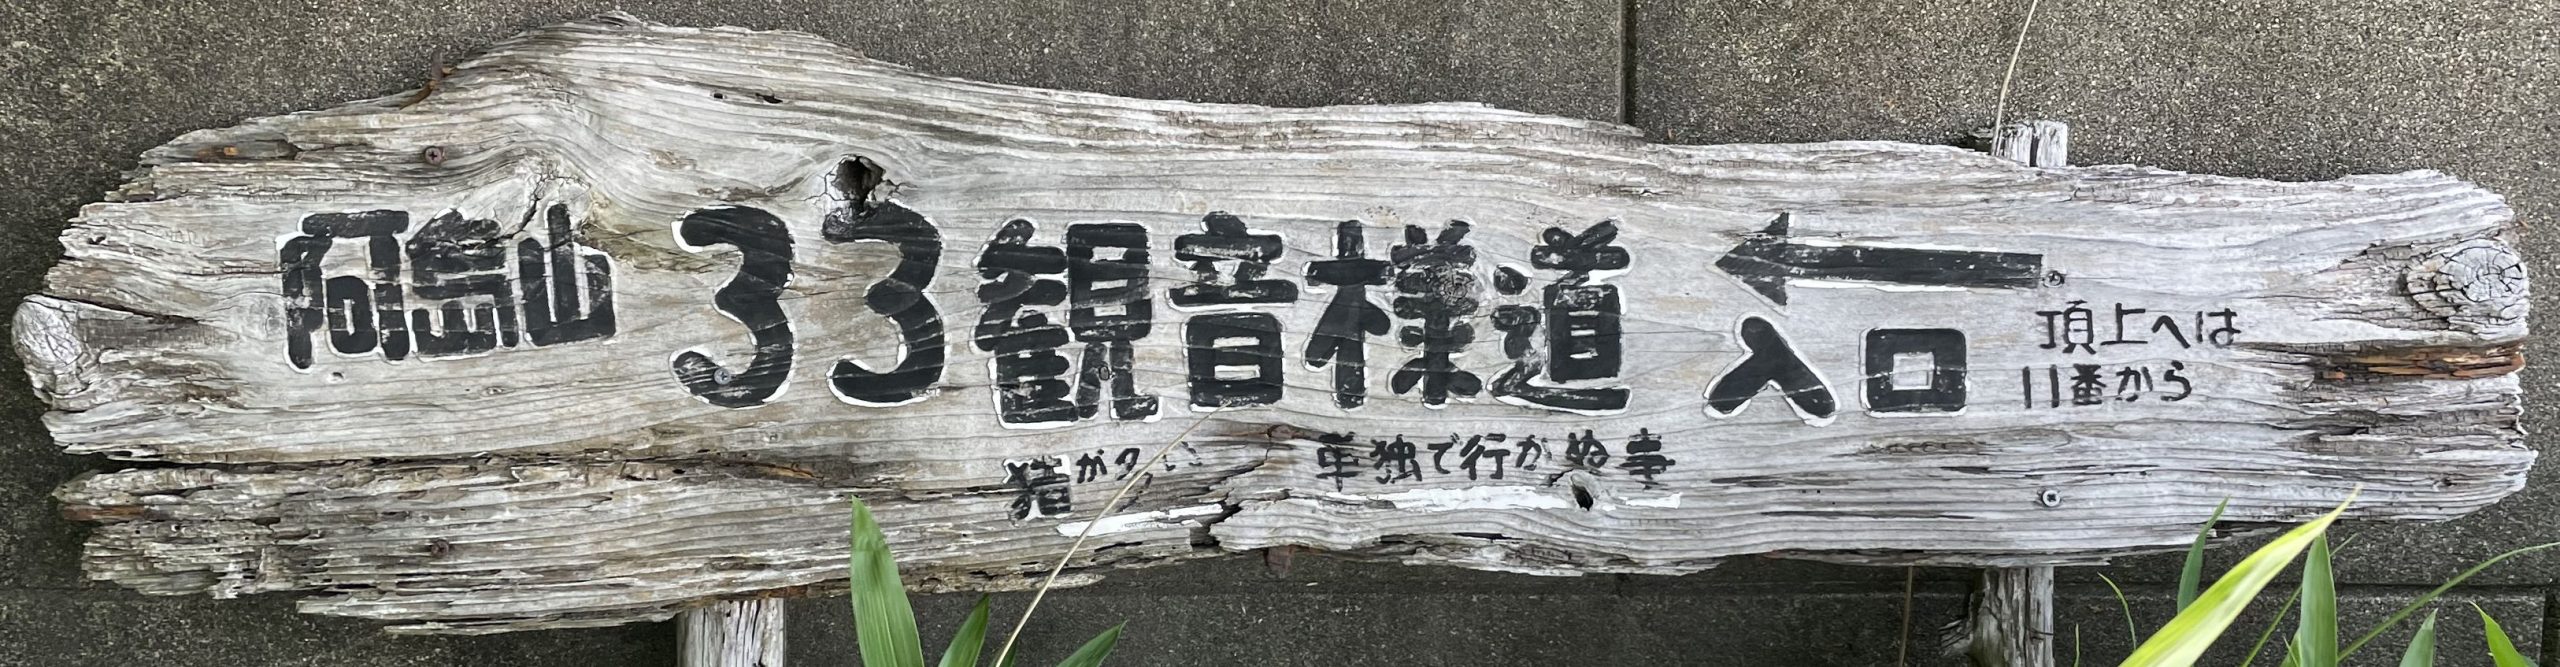 阿島山 33観音様道 ← 入口
頂上へは
11番から
猪が多い 単独で行かぬ事